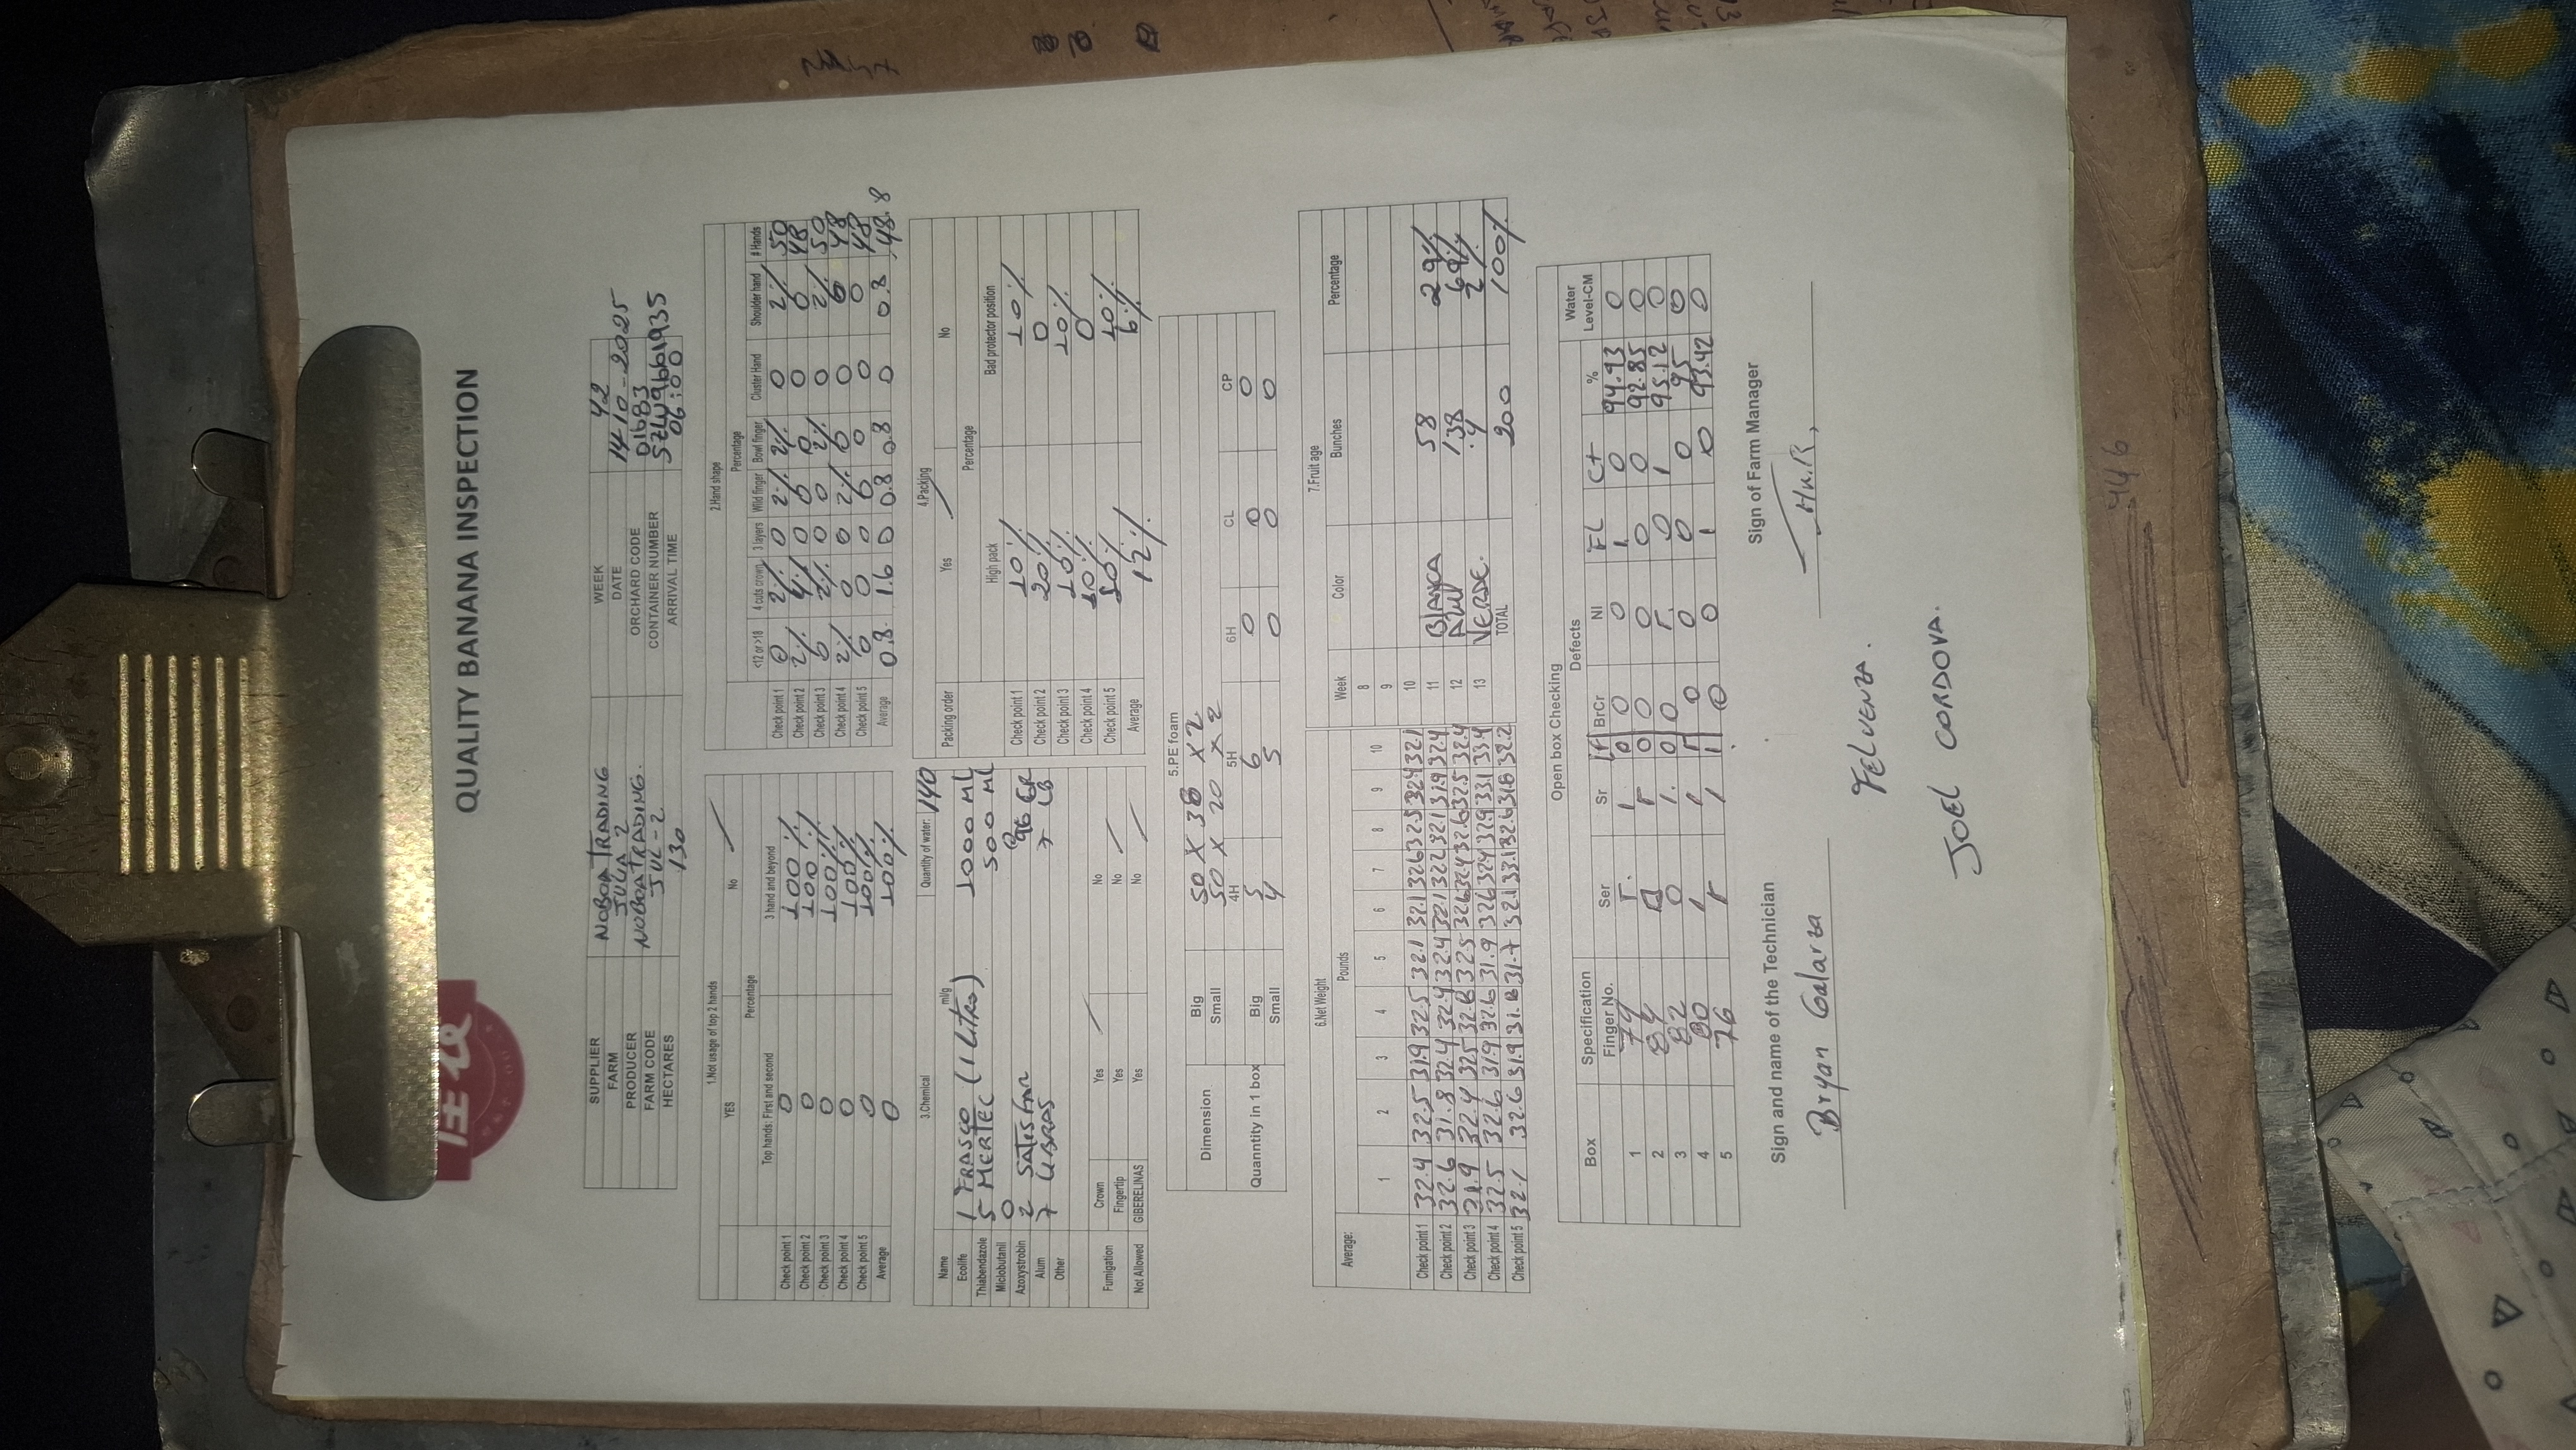 佳农
QUALITY BANANA INSPECTION
SUPPLIER NOBOA TRADING WEEK 42
FARM JULIA 2 DATE 14-10-2025
PRODUCER NOBOA TRADING. ORCHARD CODE 01683
FARM CODE JUL-2 CONTAINER NUMBER SZLU9661935
HECTARES 130 ARRIVAL TIME 06:00
1.Not usage of top 2 hands
YES No
Percentage
Top hands: First and second 3 hand and beyond
Check point 1 0 100%
Check point 2 0 100%
Check point 3 0 100%
Check point 4 0 100%
Check point 5 0 100%
Average 0 100%
2.Hand shape
Percentage
<12 or >18 4 cuts crown 3 layers Wild finger Bowl finger Cluster Hand Shoulder hand # Hands
Check point 1 0 2% 0 2% 2% 0 2% 50
Check point 2 2% 4% 0 0 0 0 0 48
Check point 3 0 2% 0 0 2% 0 2% 50
Check point 4 2% 0 0 2% 0 0 0 48
Check point 5 0 0 0 0 0 0 0 48
Average 0.8 1.6 0 0.8 0.8 0 0.8 48.8
3.Chemical Quantity of water: 140
Name ml/g
Ecolife 1 FRASCO (1 LITRO) 1000 ML
Thiabendazole 5 MERTEC 500 ML
Miclobutanil 0 0
Azoxystrobin 2 SATISFAR 96 GR
Alum 7 LIBRAS 7 LB
Other
Fumigation Crown Yes No
Fingertip Yes No
Not Allowed GIBERELINAS Yes No
4.Packing
Packing order Yes No
Percentage
High pack Bad protector position
Check point 1 10% 10%
Check point 2 20% 0
Check point 3 10% 10%
Check point 4 10% 0
Check point 5 10% 10%
Average 12% 6%
5.PE foam
Dimension Big 50 X 38 X 2
Small 50 X 20 X 2
4H 5H 6H CL CP
Quanntity in 1 box Big 5 6 0 0 0
Small 4 5 0 0 0
6.Net Weight
Average: Pounds
1 2 3 4 5 6 7 8 9 10
Check point 1 32.4 32.5 31.9 32.5 32.1 32.1 32.6 32.5 32.4 32.1
Check point 2 32.6 31.8 32.4 32.4 32.4 32.1 32.2 32.1 31.9 32.4
Check point 3 31.9 32.4 32.5 32.6 32.5 32.6 32.4 32.6 32.5 32.4
Check point 4 32.5 32.6 31.9 32.6 31.9 32.6 32.4 32.9 33.1 33.4
Check point 5 32.1 32.6 31.9 31.8 31.7 32.1 33.1 32.6 31.8 32.2
7.Fruit age
Week Color Bunches Percentage
8
9
10
11 BLANCA 58 29%
12 AZUL 138 69%
13 VERDE. 4 2%
TOTAL 200 100%
Open box Checking
Box Specification Defects Water
Finger No. Ser Sr Lf BrCr NI FL Ct % Level-CM
1 79 1. 1. 0 0 0 1. 0 94.93 0
2 84 1 0 0 0 0 0 92.85 0
3 82 0 1. 0 0 1. 0 1 95.12 0
4 80 1 1 1 0 0 0 0 95 0
5 76 1 1 1 0 0 1 0 93.42 0
Sign and name of the Technician Sign of Farm Manager
Bryan Galarza
FELVENZA.
JOEL CORDOVA.